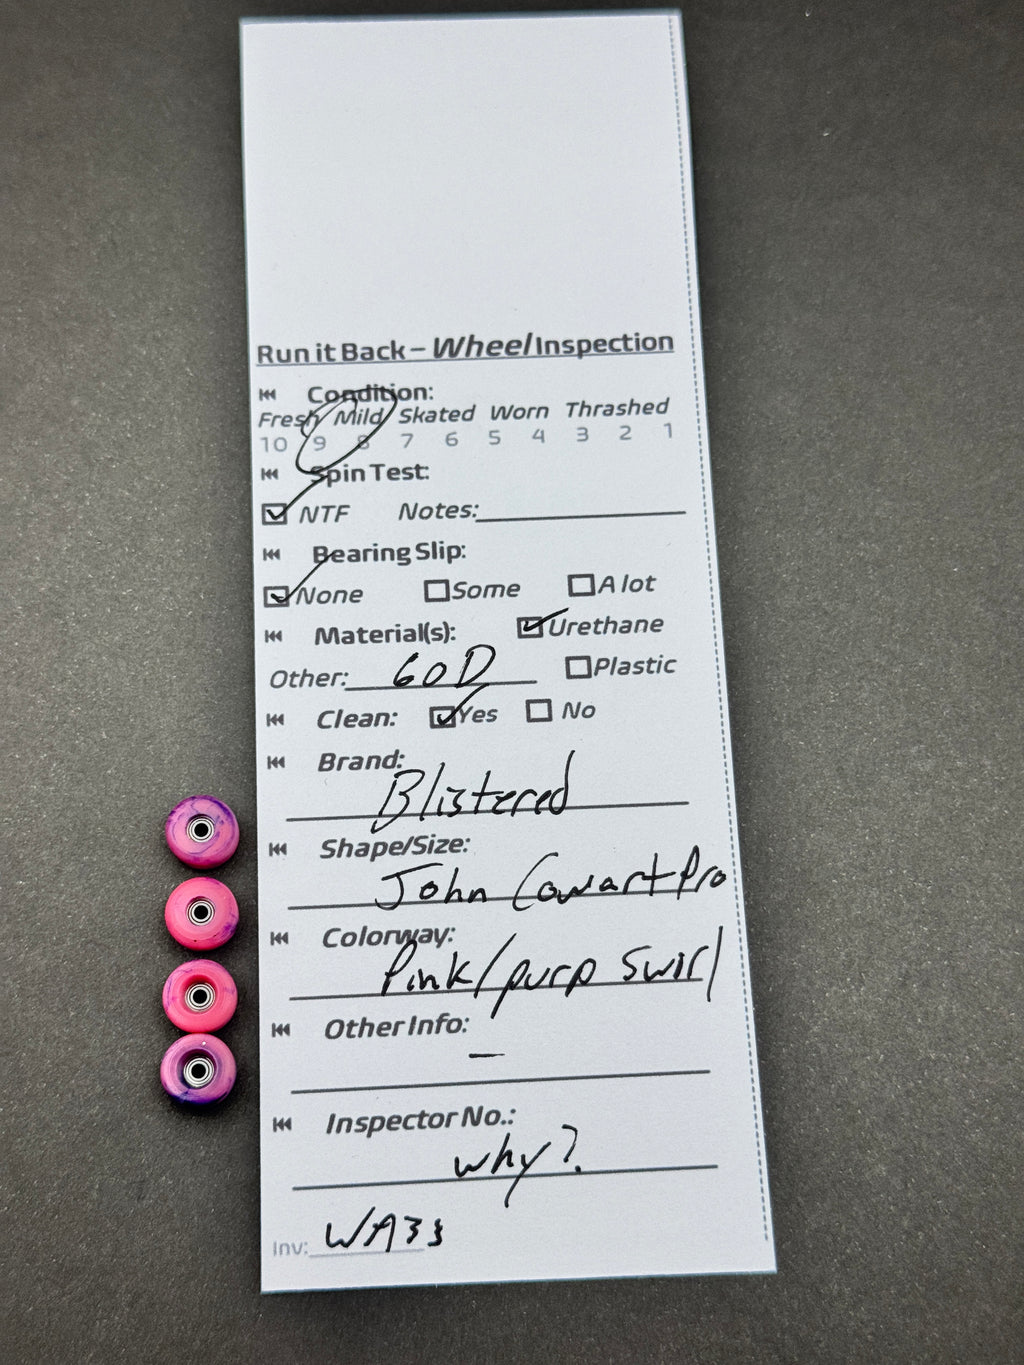 Run it Back – Wheel Inspection
Condition:
Fresh Mild Skated Worn Thrashed
10 9 8 7 6 5 4 3 2 1
Spin Test:
NTF Notes:
Bearing Slip:
None Some A lot
Material(s): Urethane
Other: 60D Plastic
Clean: Yes No
Brand:
Blistered
Shape/Size:
John Cowart Pro
Colorway:
Pink/purp swirl
Other Info:
—
Inspector No.:
why?
Inv: WA33